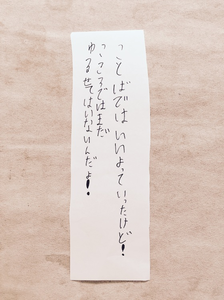 ことばではいいよっていったけど!
こころではまだ
ゆるせてはいないんだよ!